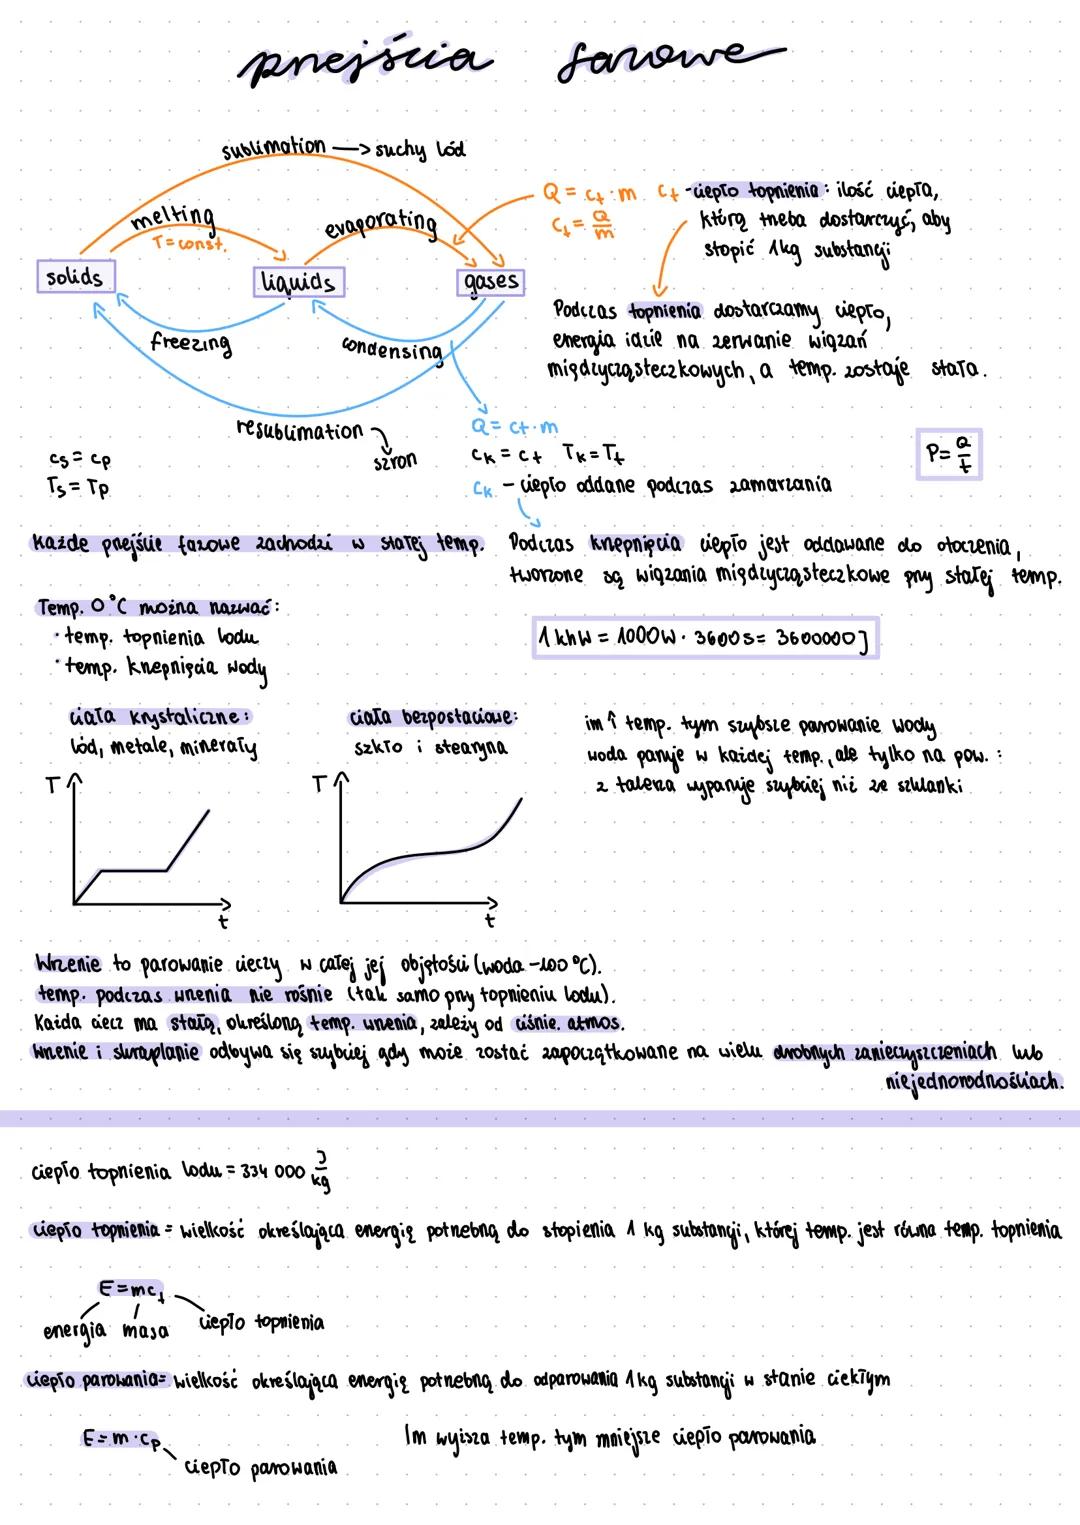 przejścia fazowe
sublimation → suchy lód
melting
T = const.
evaporating
solids
liquids
gases
freezing
condensing
resublimation
szron
Q = ct · m
ct = Q/m
ct - ciepło topnienia: ilość ciepła,
którą trzeba dostarczyć, aby
stopić 1kg substancji
Podczas topnienia dostarczamy ciepło,
energia idzie na zerwanie wiązań
międzycząsteczkowych, a temp. zostaje stała.
Q = ct · m
ck = ct Tk = Tt
ck - ciepło oddane podczas zamarzania
P = Q/t
cs = cp
Ts = Tp
Każde przejście fazowe zachodzi w stałej temp.
Podczas krzepnięcia ciepło jest oddawane do otoczenia,
tworzone są wiązania międzycząsteczkowe przy stałej temp.
Temp. 0°C można nazwać:
· temp. topnienia lodu
· temp. krzepnięcia wody
1 khW = 1000W · 3600s = 3600000J
ciała krystaliczne:
lód, metale, minerały
T
t
ciała bezpostaciowe:
szkło i stearyna
T
t
im ↑ temp. tym szybsze parowanie wody
woda paruje w każdej temp., ale tylko na pow. :
z talerza wyparuje szybciej niż ze szklanki
Wrzenie to parowanie cieczy w całej jej objętości (woda -100 °C).
temp. podczas wrzenia nie rośnie (tak samo przy topnieniu lodu).
Każda ciecz ma stałą, określoną temp. wrzenia, zależy od ciśnie. atmos.
Wrzenie i skraplanie odbywa się szybciej gdy może zostać zapoczątkowane na wielu drobnych zanieczyszczeniach lub
niejednorodnościach.
ciepło topnienia lodu = 334 000 J/kg
ciepło topnienia = wielkość określająca energię potrzebną do stopienia 1 kg substancji, której temp. jest równa temp. topnienia
E = mct
energia masa ciepło topnienia
ciepło parowania = wielkość określająca energię potrzebną do odparowania 1 kg substancji w stanie ciekłym
E = m · cp
ciepło parowania
Im wyższa temp. tym mniejsze ciepło parowania